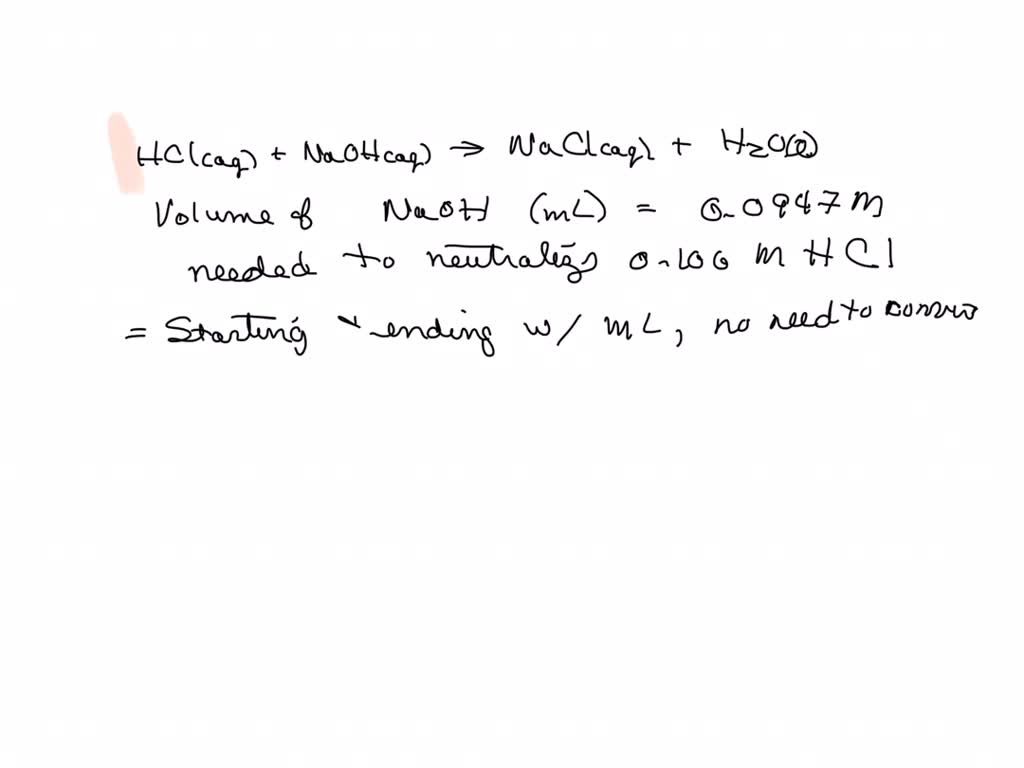 HCl(aq) + NaOH(aq) → NaCl(aq) + H2O(l)
Volume of NaOH (mL) = 0.0947 M
needed to neutralize 0.100 M HCl
= Starting + ending w/ mL, no need to